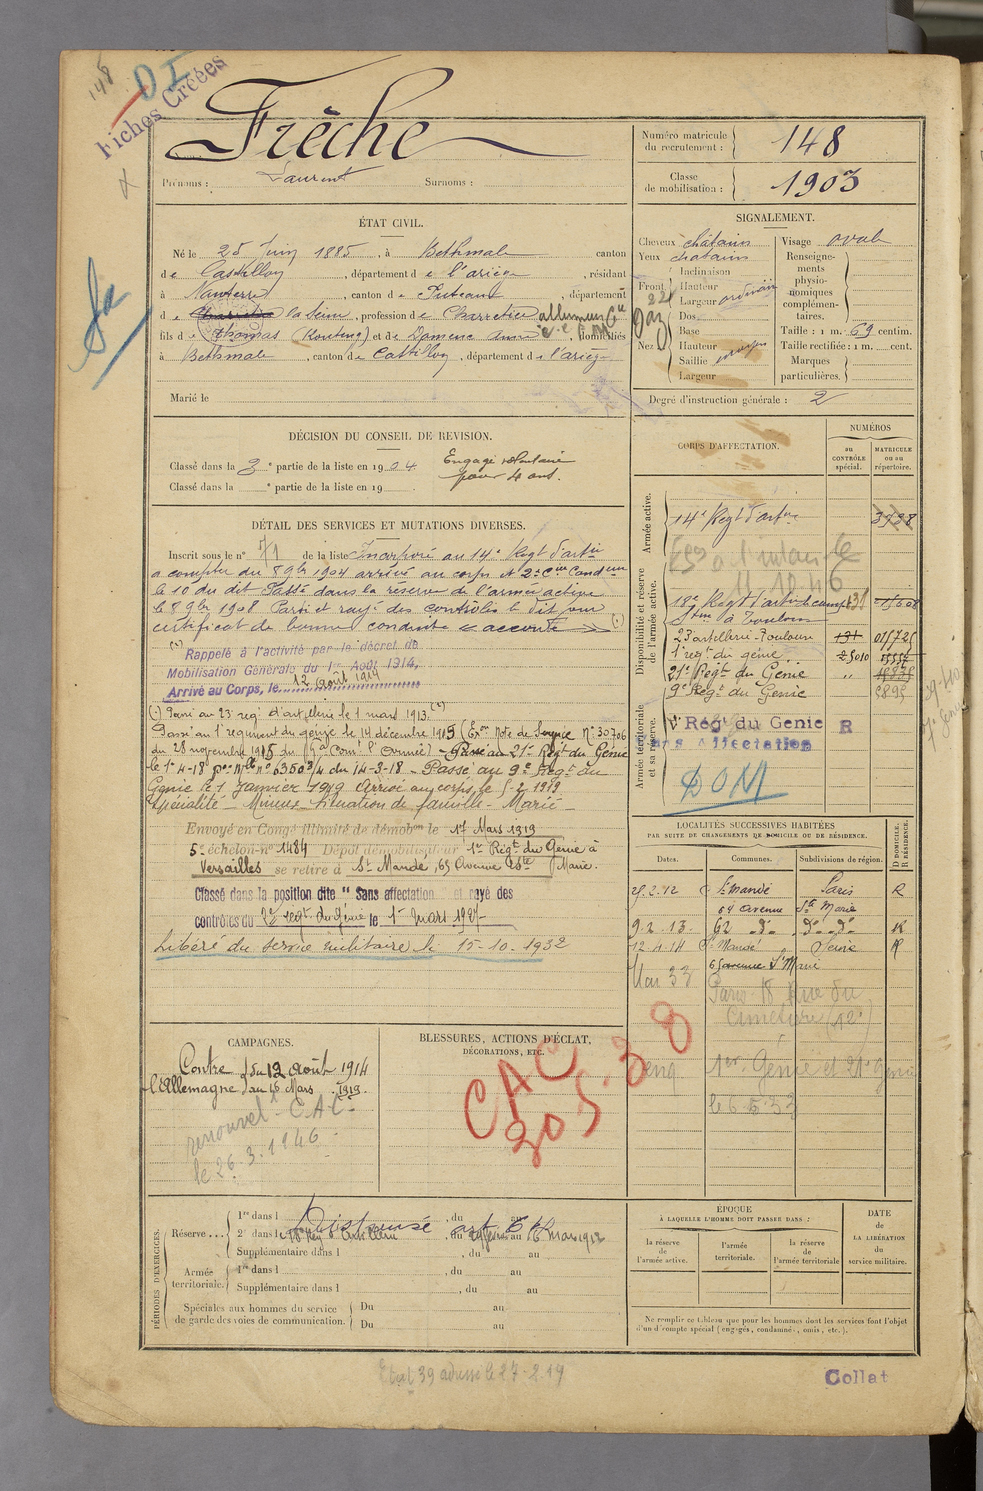 148
D I
Fiches Créées
Frèche
Prénoms : Laurent Surnoms :
Numéro matricule du recrutement : 148
Classe de mobilisation : 1903
ÉTAT CIVIL.
Né le 25 Juin 1885, à Bethmale canton
de Castillon, département de l'ariège, résidant
à Nanterre, canton de Puteaux, département
de la Seine, profession de Charretier
fils de Thomas et de Domenc Anne, domiciliés
à Bethmale, canton de Castillon, département de l'ariège
Marié le
SIGNALEMENT.
Cheveux châtains
Yeux chatains
Front
Inclinaison
Hauteur
Largeur ordinaire
Nez
Dos
Base
Hauteur
Saillie moyen
Largeur
Visage ovale
Renseignements physionomiques complémentaires.
Taille : 1 m. 69 centim.
Taille rectifiée : 1 m. cent.
Marques particulières.
Degré d'instruction générale : 2
DÉCISION DU CONSEIL DE REVISION.
Classé dans la 3e partie de la liste en 1904
Classé dans la e partie de la liste en 19 .
Engagé volontaire
pour 4 ans.
DÉTAIL DES SERVICES ET MUTATIONS DIVERSES.
Inscrit sous le n° 71 de la liste Incorporé au 14e Régt d'artie
a compter du 8 9bre 1904 arrivé au corps et 2e Cer Condeur
le 10 du dit Passé dans la réserve de l'armée active
le 8 9bre 1908 Parti et rayé des contrôles le dit jour
certificat de bonne conduite « accordé »
Rappelé à l'activité par le décret de
Mobilisation Générale du 1er Août 1914,
Arrivé au Corps, le 12 août 1914
Passé au 23e reg. d'artillerie le 1 mars 1913.
Passé au 1er régiment du génie le 14 décembre 1915 (Exon Note de Service N° 30706
du 28 novembre 1915 du Gd Comt des Armées) - Passé au 21e Régt du Génie
le 1er-4-18 Don Mlle n° 63503/4 du 14-3-18 - Passé au 9e Régt du
Génie le 1er Janvier 1919 Arrivé au corps le 5-2-1919
Spécialité - Mineur - Situation de famille - Marié -
Envoyé en Congé illimité de démobon le 17 Mars 1919
5e échelon-n° 1484 Dépôt démobilisateur 1er Régt du Génie à
Versailles se retire à St Mandé, 65 Avenue Ste Marie.
Classé dans la position dite "Sans affectation et rayé des
contrôles du régt du Génie le 1er mars 1927
Libéré du service militaire le 15-10-1932
CORPS D'AFFECTATION.
NUMÉROS
au CONTRÔLE spécial.
MATRICULE ou au répertoire.
Armée active.
14e Régt d'artie
Disponibilité et réserve de l'armée active.
18e Régt d'art. de camp.
23 artillerie - Toulouse
1er regt du génie 5010
21e Régt du Génie
9e Régt du Genie 5895
Armée territoriale et sa réserve.
Vr Rég' du Genie R
Sans Affectation
DOM
LOCALITÉS SUCCESSIVES HABITÉES
PAR SUITE DE CHANGEMENTS DE DOMICILE OU DE RÉSIDENCE.
Dates. Communes. Subdivisions de région. D DOMICILE. R RÉSIDENCE.
25.2.12 St mandé Paris R
64 avenue Ste Marie
9.2.13. 62 do do do R
12.4.14 St Mandé Seine R
65 avenue Ste Marie
Mai 33 Paris 18 Rue du
Cimetière (12e)
1er Génie et 21e Génie
le 6.5.33
CAMPAGNES.
Contre l'Allemagne du 12 août 1914
au 16 Mars 1919.
renouvel t C.A.C.
le 26.3.1946
BLESSURES, ACTIONS D'ÉCLAT, DÉCORATIONS, ETC.
CAC
30 5.38
PÉRIODES D'EXERCICES.
Réserve ...
1re dans l Dispensé, du au
2e dans l , du au 16 Mars 1912
Supplémentaire dans l , du au
Armée territoriale.
1re dans l , du au
Supplémentaire dans l , du au
Spéciales aux hommes du service de garde des voies de communication.
Du au
Du au
ÉPOQUE
À LAQUELLE L'HOMME DOIT PASSER DANS :
la réserve de l'armée active.
l'armée territoriale.
la réserve de l'armée territoriale
DATE DE LA LIBÉRATION du service militaire.
Ne remplir ce tableau que pour les hommes dont les services font l'objet
d'un décompte spécial (engagés, condamnés, omis, etc.).
Etat 39 adressé le 27-2-19
Collat